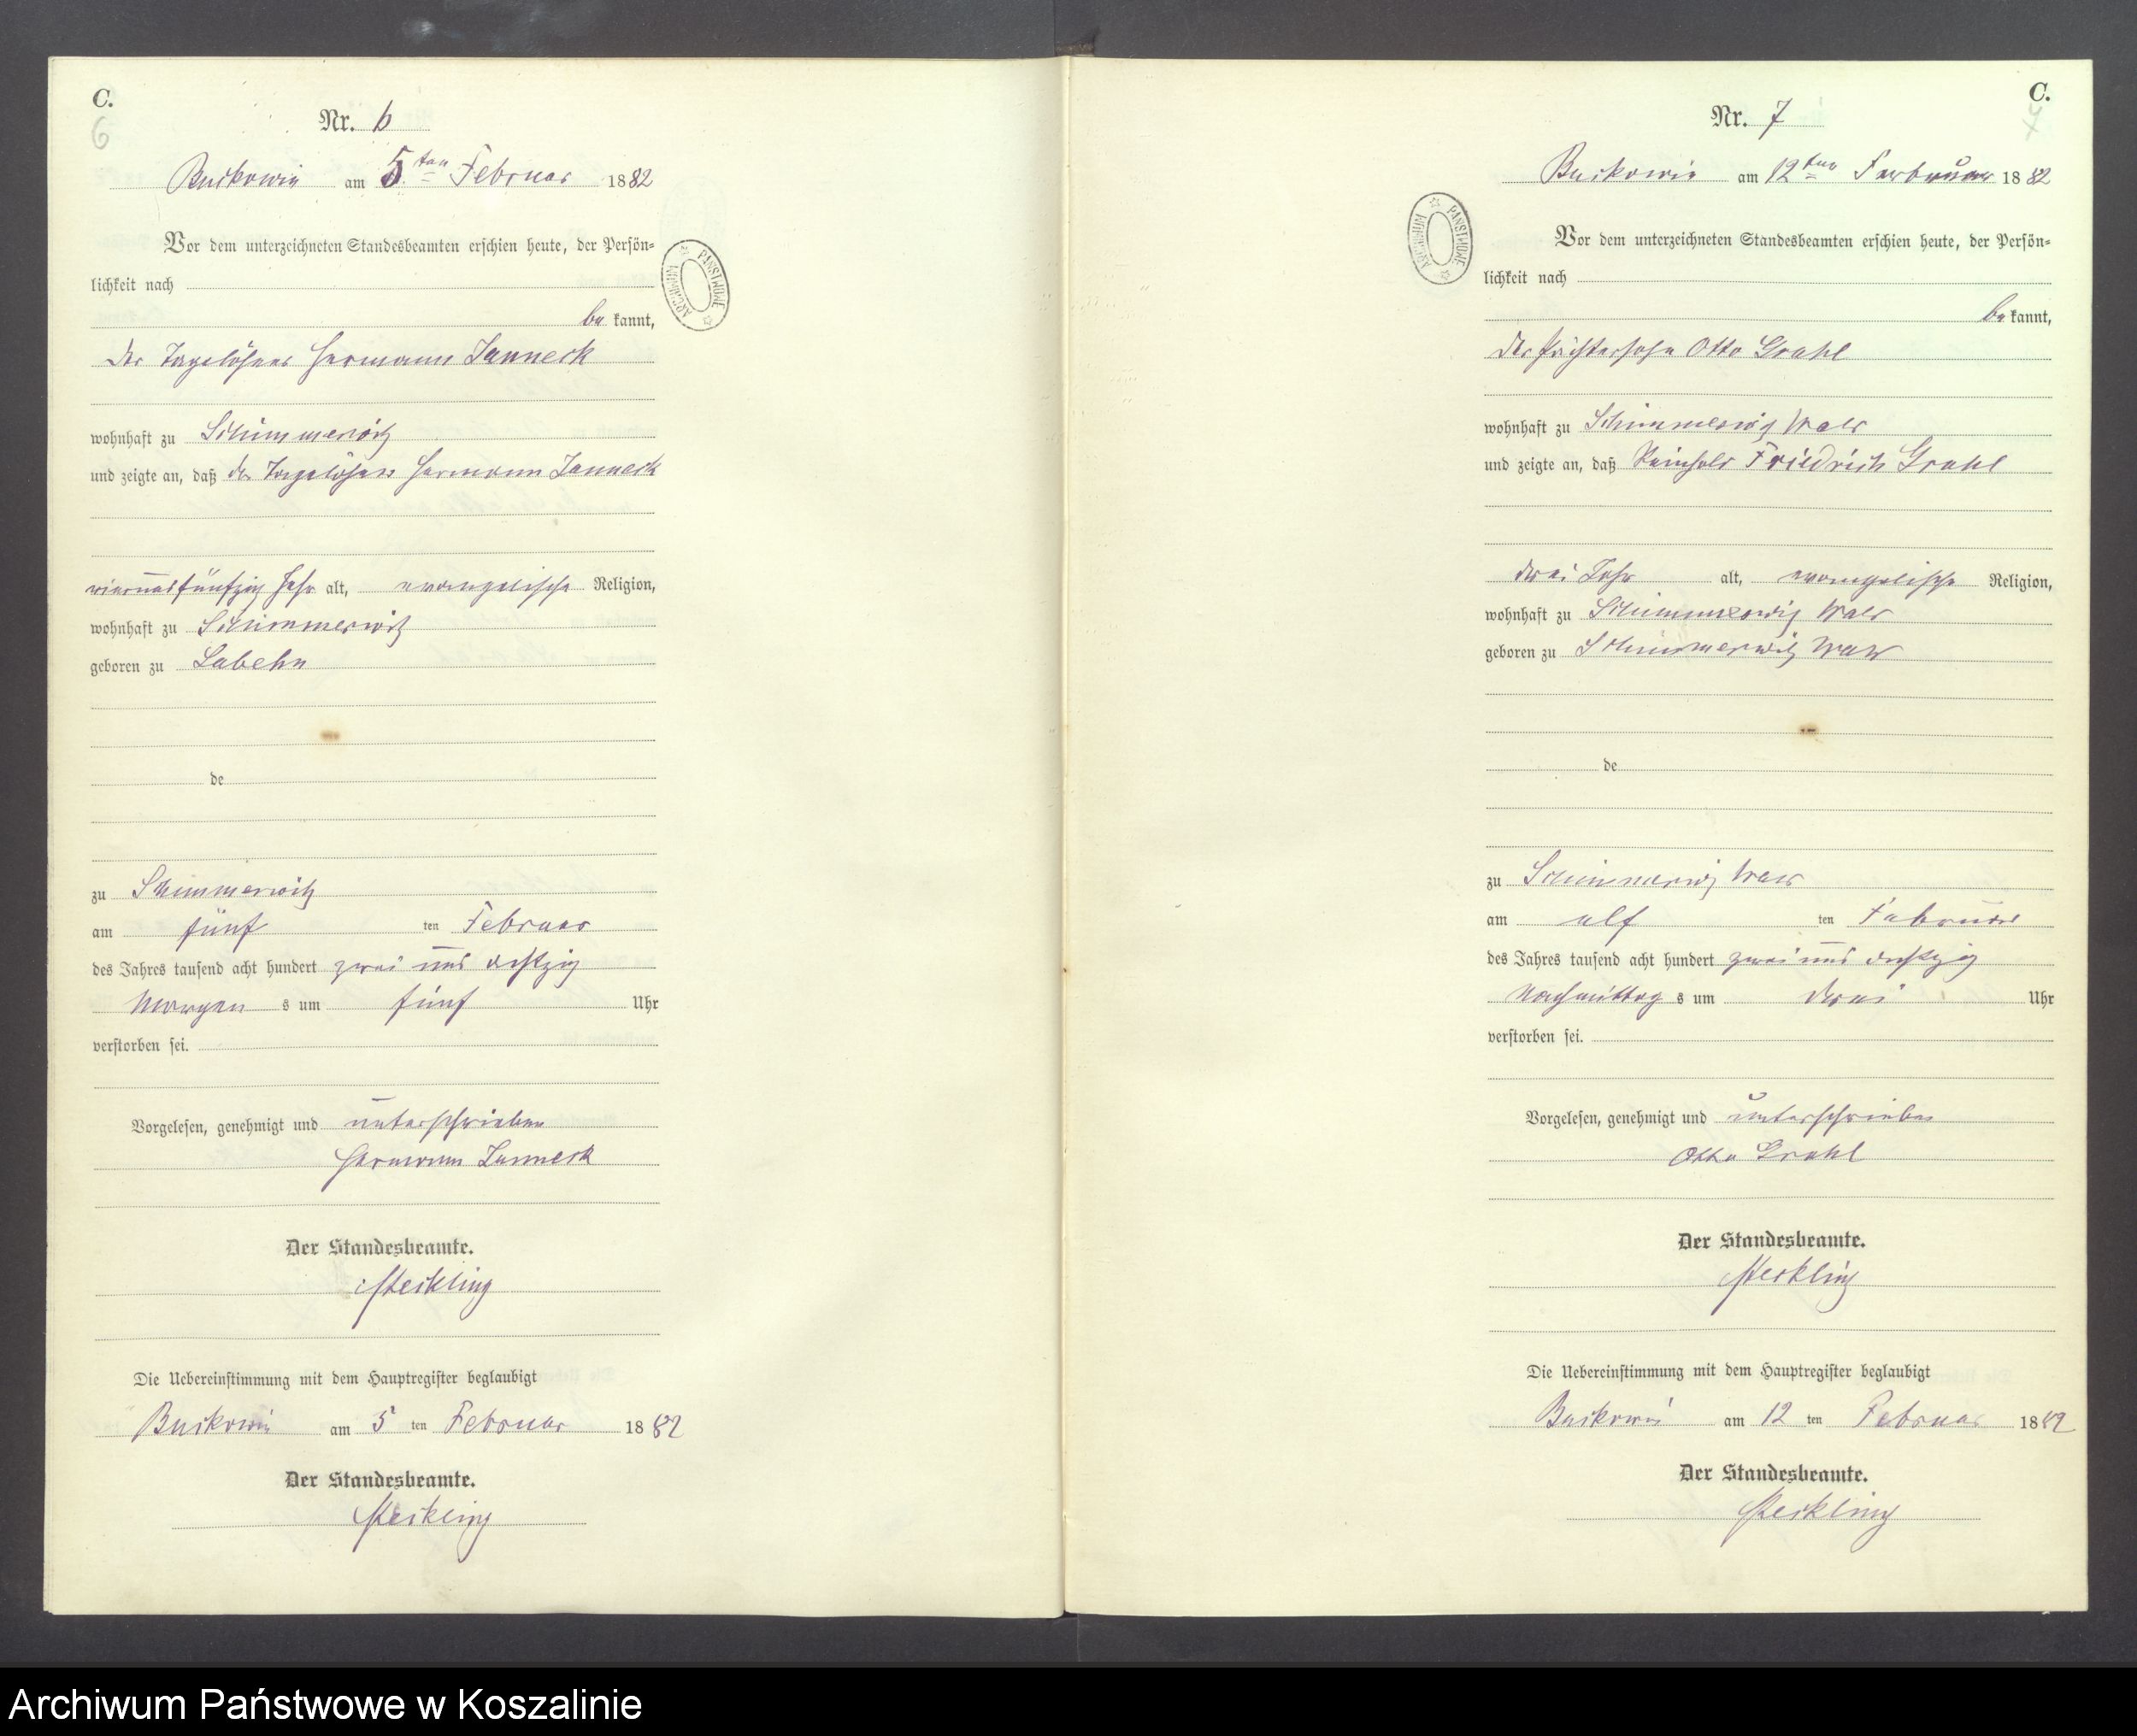 C.
6
Nr. 6
Buckowin am 5ten Februar 1882
Vor dem unterzeichneten Standesbeamten erschien heute, der Persön-
lichkeit nach
be kannt,
der Tagelöhner Hermann Janneck
wohnhaft zu Schimmerwitz
und zeigte an, daß der Tagelöhner Hermann Janneck
vierundfünfzig Jahr alt, evangelische Religion,
wohnhaft zu Schimmerwitz
geboren zu Labehn
de
zu Schimmerwitz
am fünf ten Februar
des Jahres tausend acht hundert zwei und achtzig
Morgen s um fünf Uhr
verstorben sei.
Vorgelesen, genehmigt und unterschrieben
Hermann Janneck
Der Standesbeamte.
Die Uebereinstimmung mit dem Hauptregister beglaubigt
Buckowin am 5 ten Februar 1882
Der Standesbeamte.
ARCHIWUM PAŃSTWOWE
C.
Nr. 7
Buckowin am 12ten Februar 1882
Vor dem unterzeichneten Standesbeamten erschien heute, der Persön-
lichkeit nach
be kannt,
der Otto Grahl
wohnhaft zu Schimmerwitz Wald
und zeigte an, daß Reinhold Friedrich Grahl
drei Jahr alt, evangelische Religion,
wohnhaft zu Schimmerwitz Wald
geboren zu Schimmerwitz Wald
de
zu Schimmerwitz Wald
am elf ten Februar
des Jahres tausend acht hundert zwei und achtzig
Nachmittag s um drei Uhr
verstorben sei.
Vorgelesen, genehmigt und unterschrieben
Otto Grahl
Der Standesbeamte.
Die Uebereinstimmung mit dem Hauptregister beglaubigt
Buckowin am 12 ten Februar 1882
Der Standesbeamte.
ARCHIWUM PAŃSTWOWE
Archiwum Państwowe w Koszalinie